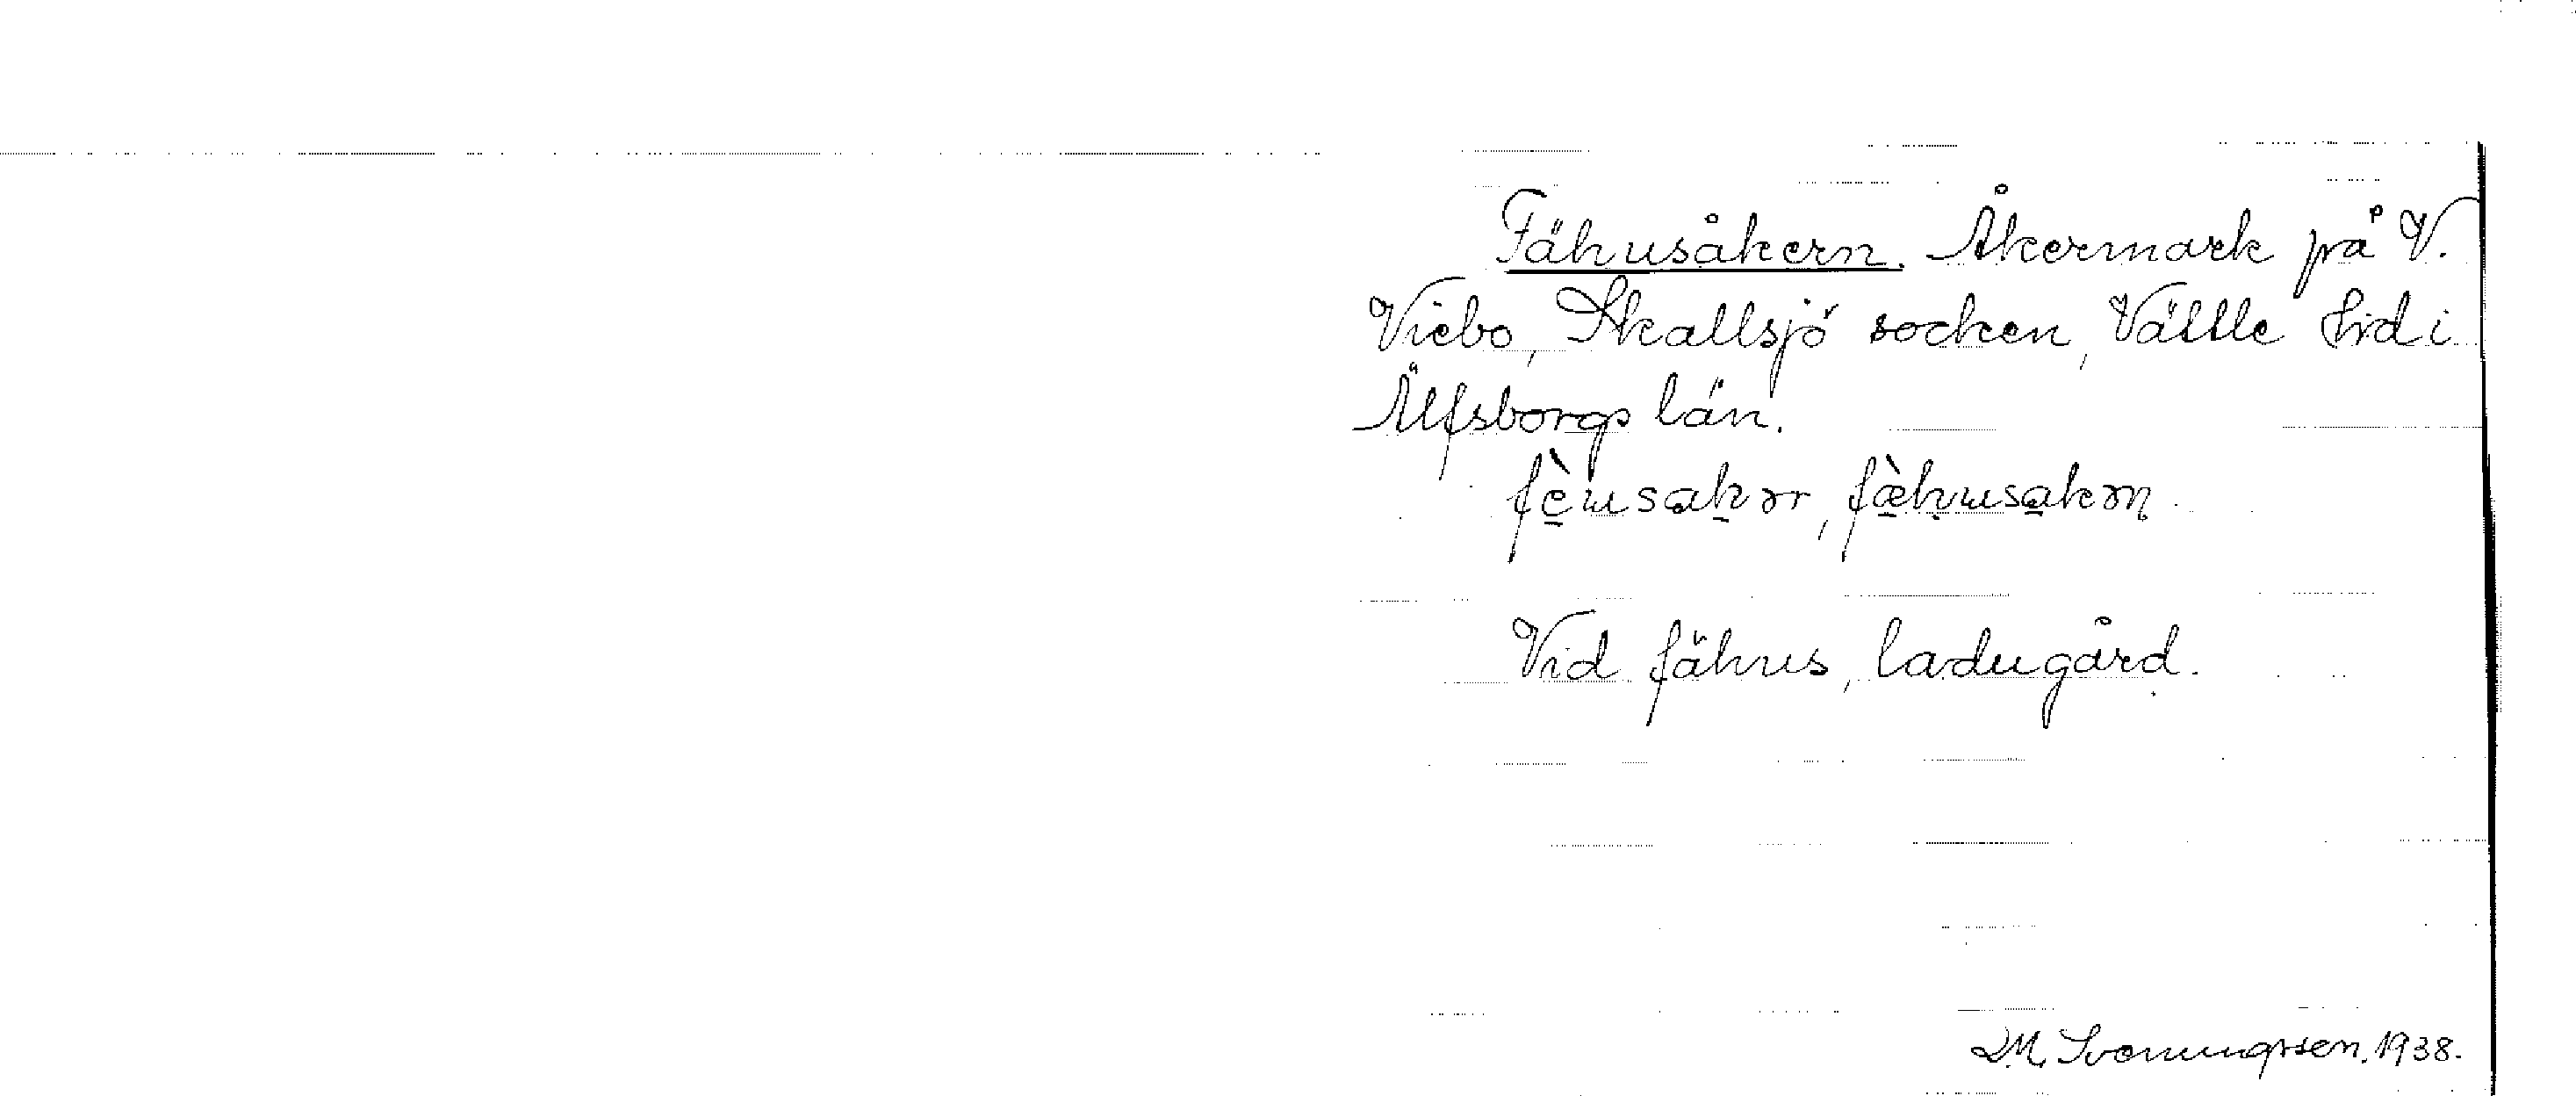 Fähusåkern. Åkermark på V.
Viebo, Skallsjö socken, Vättle hrd i
Älfsborgs län.
fæ̀ʉsakər, fæ̀hʉsakəɳ
Vid fähus, ladugård.
D.M. Svenungsson, 1938.